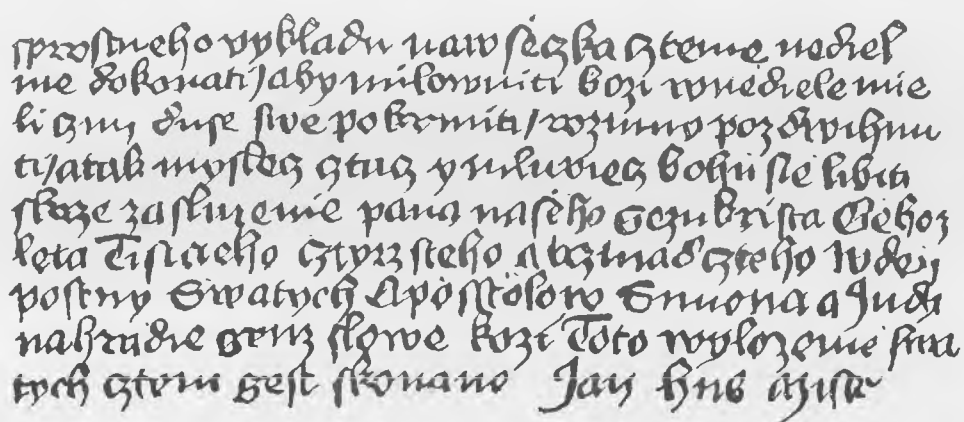 sprostneho vykladu naw seczka čtenie nediel
nie dokonati / aby milownici bozi w nediele mie
li czim duse swe pokrmiti / rozumy pozdwihnu
ti / a tak myslecz čtucz y milugiecz bohu sie libiti
skrze zasluzenie pana naseho gezukrista Gehoz
leta Tisicieho cztyrzsteho a trzinadczteho w den
postny Swatych Appōsstolow Simona a Judy
na hradie genz slowe kozi Toto wylozenie swa
tych čteni gest skonano Jan hus mistr